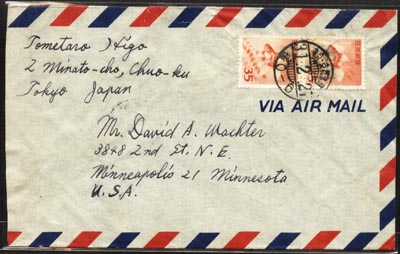 Tometaro Higo
2 Minato-cho, Chuo-ku
Tokyo Japan
VIA AIR MAIL
Mr. David A. Wachter
3848 2nd St. N.E.
Minneapolis 21 Minnesota
U.S.A.